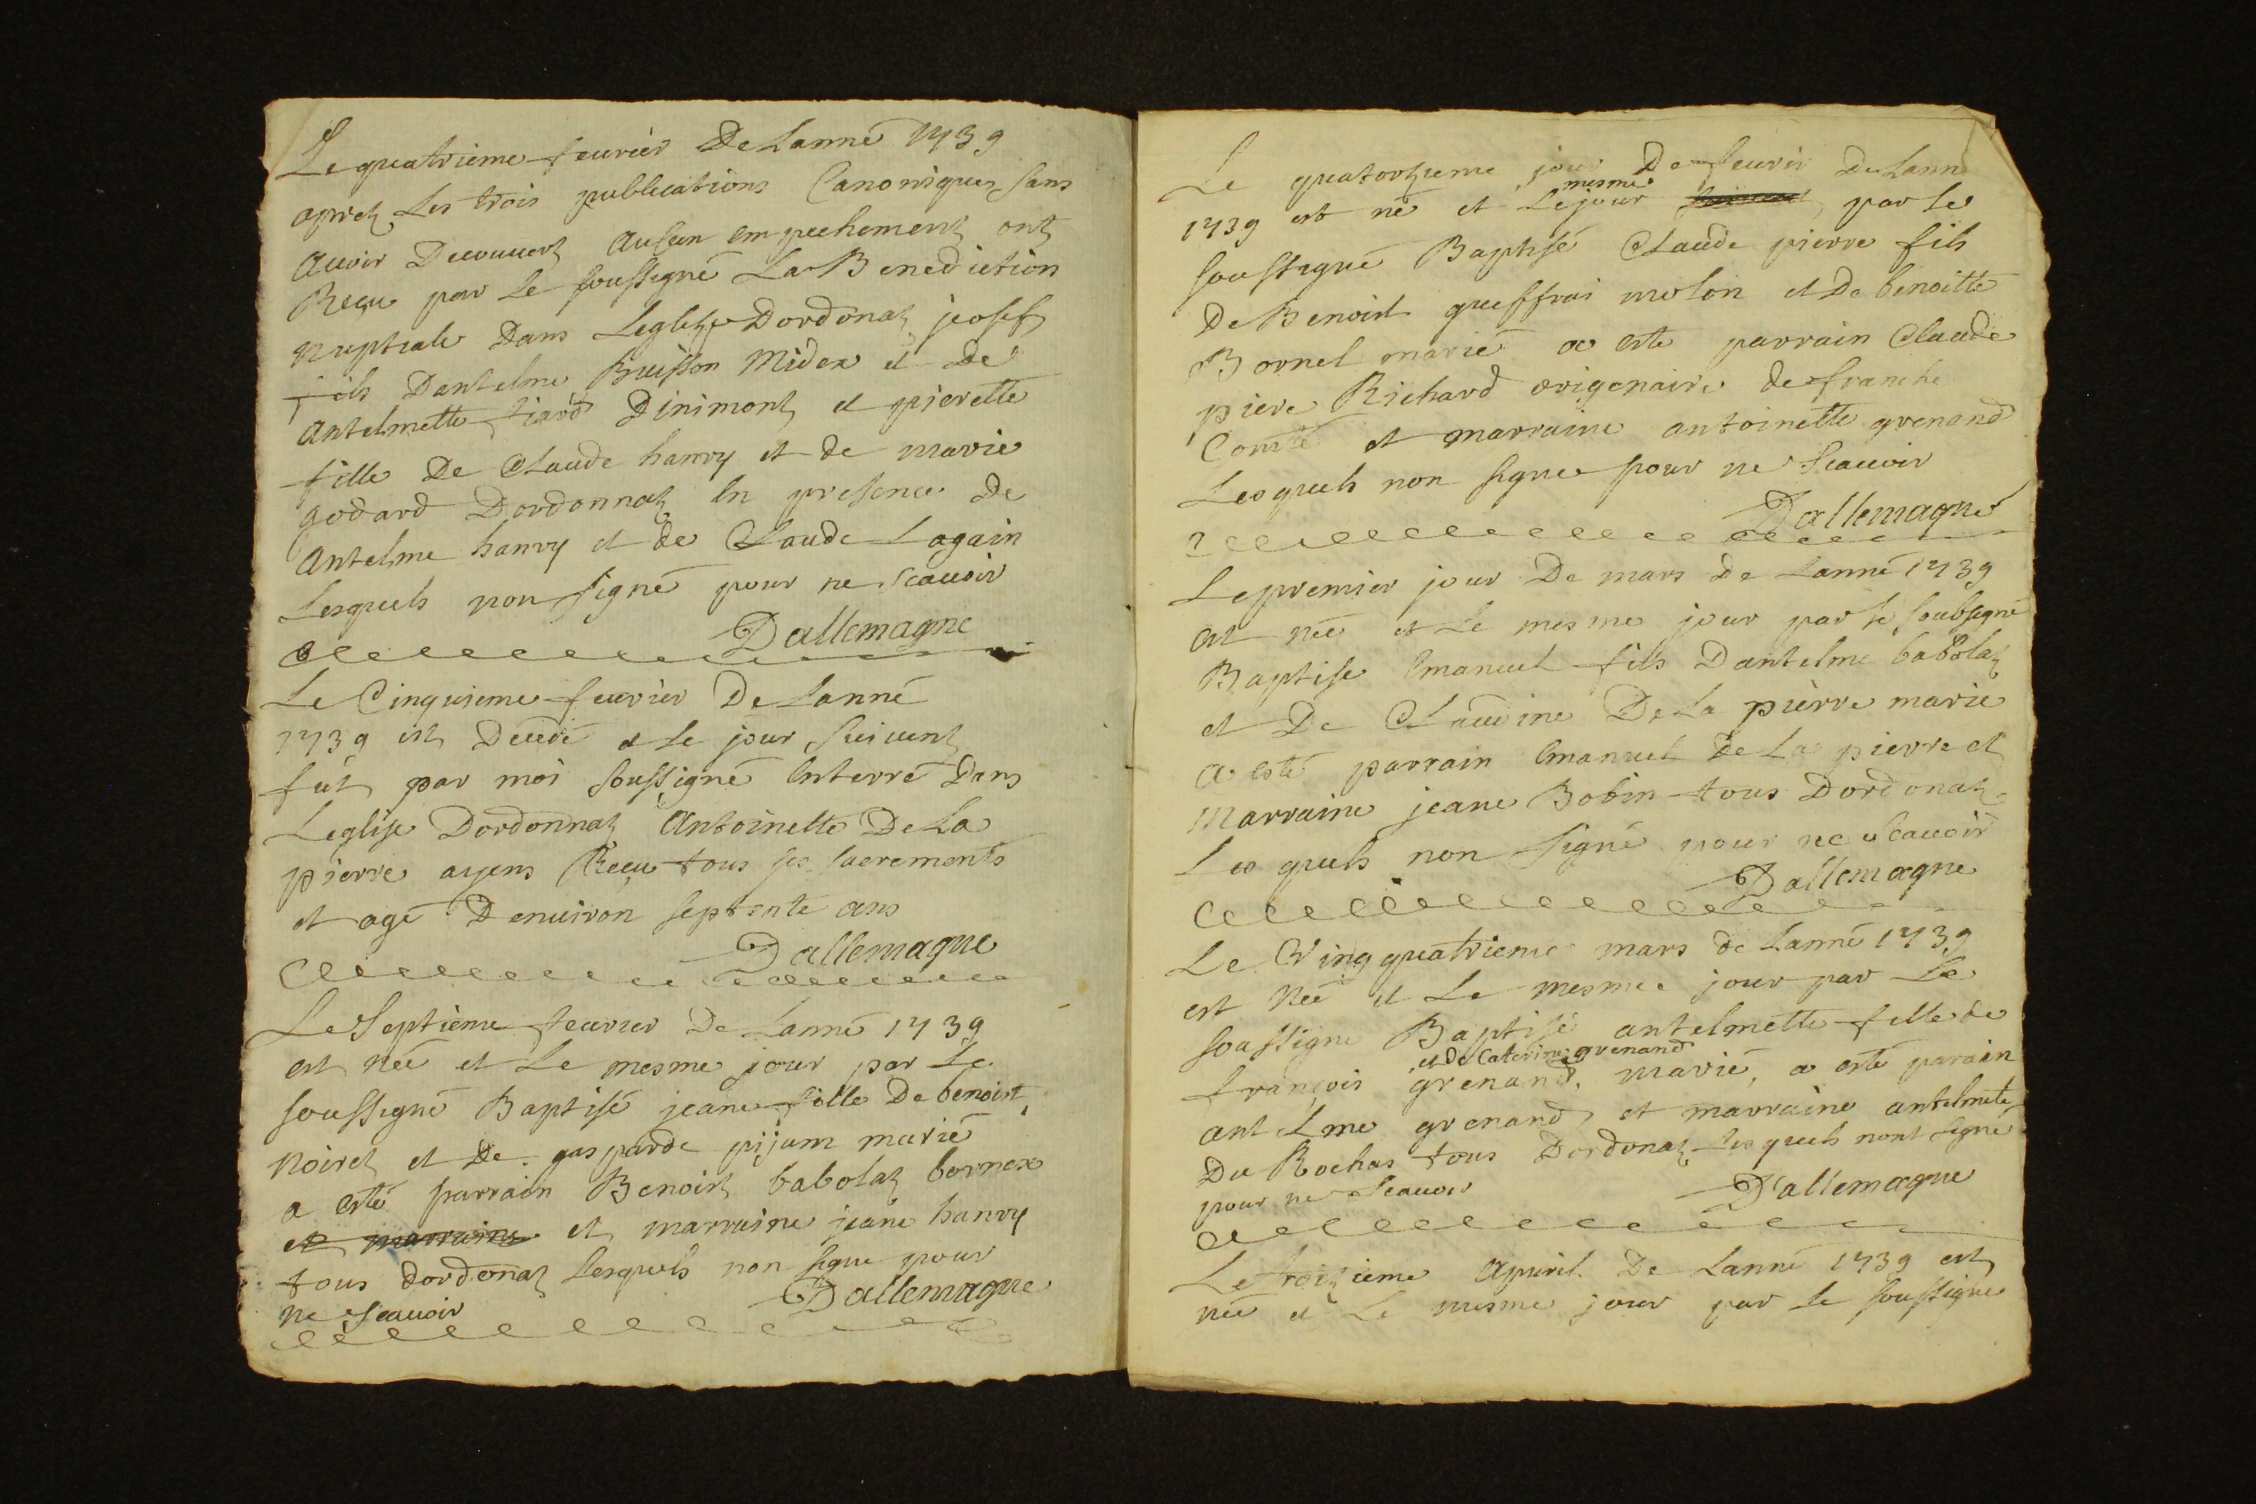 Le quatrieme feurier De Lanné 1739
aprez Les trois publications Canoniques sans
Auoir Decouuert Aucun empechement ont
Reçu par le soussigné La Benediction
nuptiale Dans Leglize Dordonaz josef
fils Dantelme Buisson Midex et De
antelmette tiard Dinimont et pierette
fille De Claude hanry et de marie
godard Dordonnaz En presence De
Antelme hanry et de Claude Lagain
Lesquels non signé pour ne scauoir
Dallemagne
Le Cinquieme feurier De Lanné
1739 est Decedé et le jour suiuent
fut par moi soussigné Enterré Dans
Leglise Dordonnaz Antoinette De La
pierre ayens Reçu tous ses sacrements
et agé Denuiron septente ans
Dallemagne
Le Septieme feurier De Lanné 1739
est née et Le mesme jour par Le
soussigné Baptisé jeane fille De benoist
Noiret et De gasparde pijam marié
a esté parrain Benoist babolaz bornex
et marraine et marraine jeane hanry
tous dordonaz Lesquels non signe pour
ne scauoir Dallemagne
Le quatorzieme jour De feurir de Lanné
mesme
1739 est né et Le jour par le
soussigné Baptisé Claude pierre fils
De Benoist gueffrai molon et De benoitte
Bornel marié a esté parrain Claude
piere Richard origenaire de franche
Comté et marraine antoinette grenand
Lesquels non signe pour ne Scauoir
Dallemagne
Le premier jour De mars de Lanné 1739
est née et Le mesme jour par le soubsigné
Baptise Emanuel fils Dantelme babolaz
et De Claudine De La pierre marie
a esté parrain Emanuel De La pierre et
Marraine jeane Bobin tous Dordonaz
Lesquels non signé pour ne scauoir
Dallemagne
Le Vingquatrieme mars de Lanné 1739
est Née et Le mesme jour par Le
soussigne Baptisé antelmette fille de
et de Caterine grenand
françois grenand, marié, a esté parain
antelme grenand et marraine antelmete
Du Rochas tous Dordonaz Lesquels nont signé
pour ne Scauoir Dallemagne
Le troizieme Apuril De Lanné 1739 est
née et Le mesme jour par le soussigne